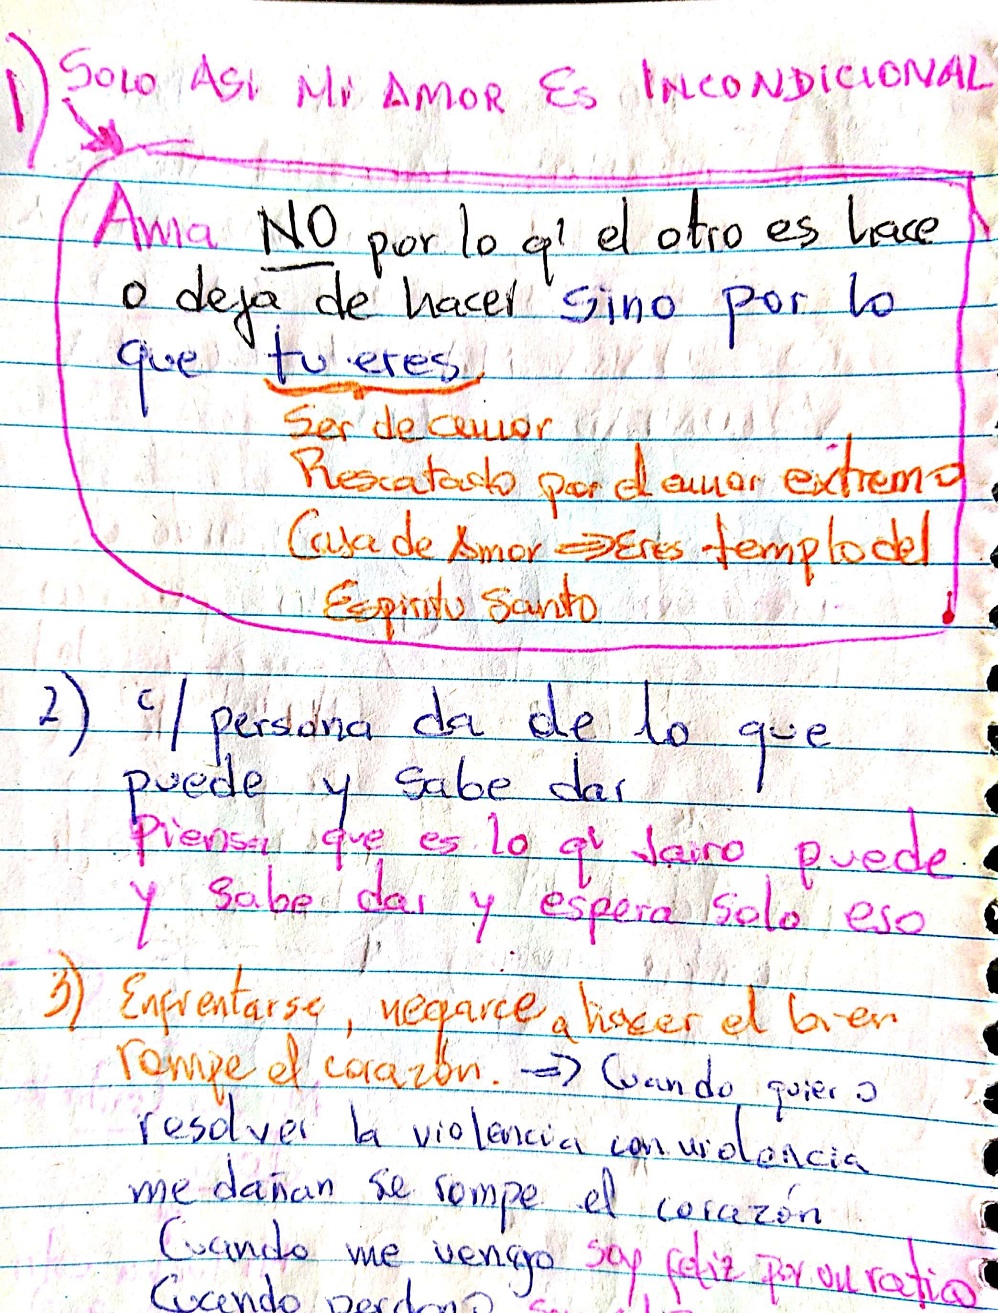 1) Solo Asi Mi Amor Es Incondicional
Ama NO por lo q' el otro es hace
o deja de hacer sino por lo
que tu eres
Ser de amor
Rescatado por el amor extremo
Casa de Amor ⇒ Eres templo del
Espiritu Santo
2) c/ persona da de lo que
puede y sabe dar
Piensa que es lo q' Jairo puede
y sabe dar y espera solo eso
3) Enfrentarse, negarce a hacer el bien
rompe el corazón. ⇒ Cuando quiero
resolver la violencia con violencia
me dañan se rompe el corazón
Cuando me vengo soy feliz por un ratico
Cuando perdono